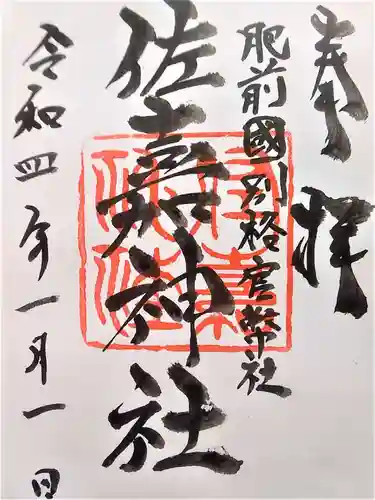 奉拝
肥前國別格官幣社
佐嘉神社
令和四年一月一日